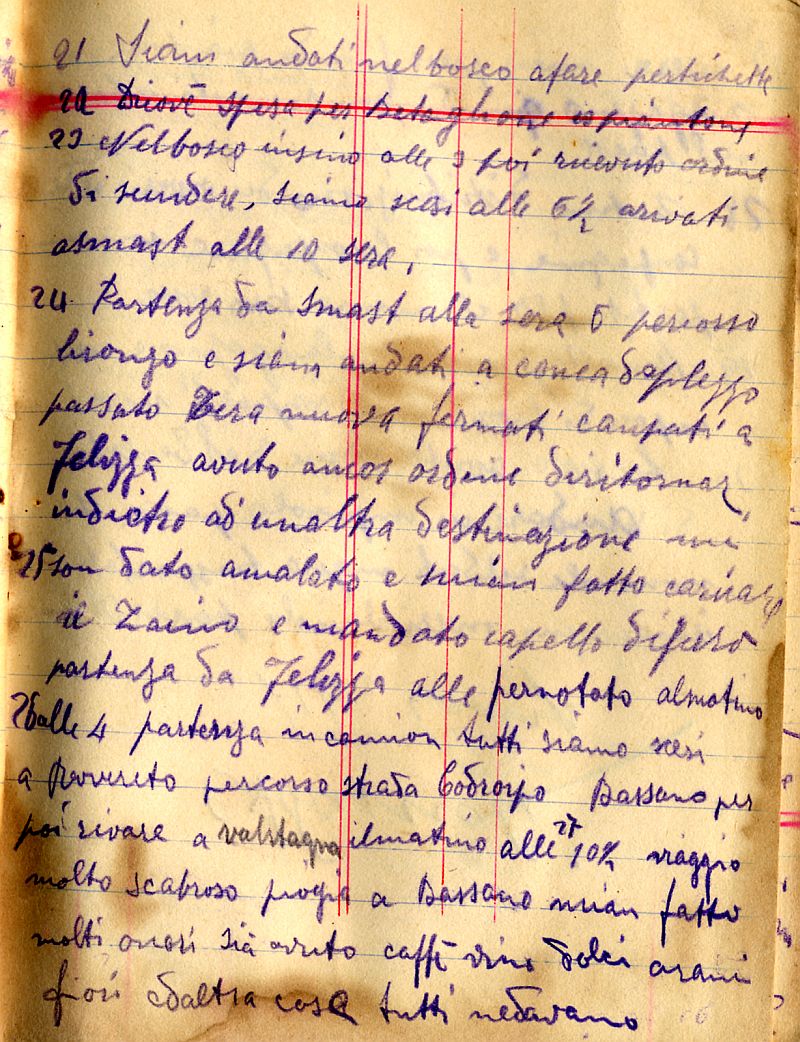 21 Siam andati nel bosco afare pertichette
22 spesa per Betaglione
23 Nelbosco insino alle 3 poi ricevuto ordine
di sendere, siamo scesi alle 6½ arivati
asmast alle 10 sera,
24 Partenza da Smast alla sera 6 percosso
e siam andati a conca daplezzo
passato Tera nuova fermati canpati a
Jelizza avuto ancor ordine diritornar
indietro ad unaltra destinazione mi
25 son dato amalato e mian fatto cariar
il Zaino e mandato capello difero
partenza da Jelizza alle pernotato almatino
26 alle 4 partenza incamion tutti siamo scesi
a percorso strada Codroipo Bassano per
poi rivare a valstagna ilmatino alle 27 10½ viaggio
molto scabroso piogia a Bassano mian fatto
molti onori sià avuto caffè vino dolci arani
fiori edaltra cosa tutti nedavano